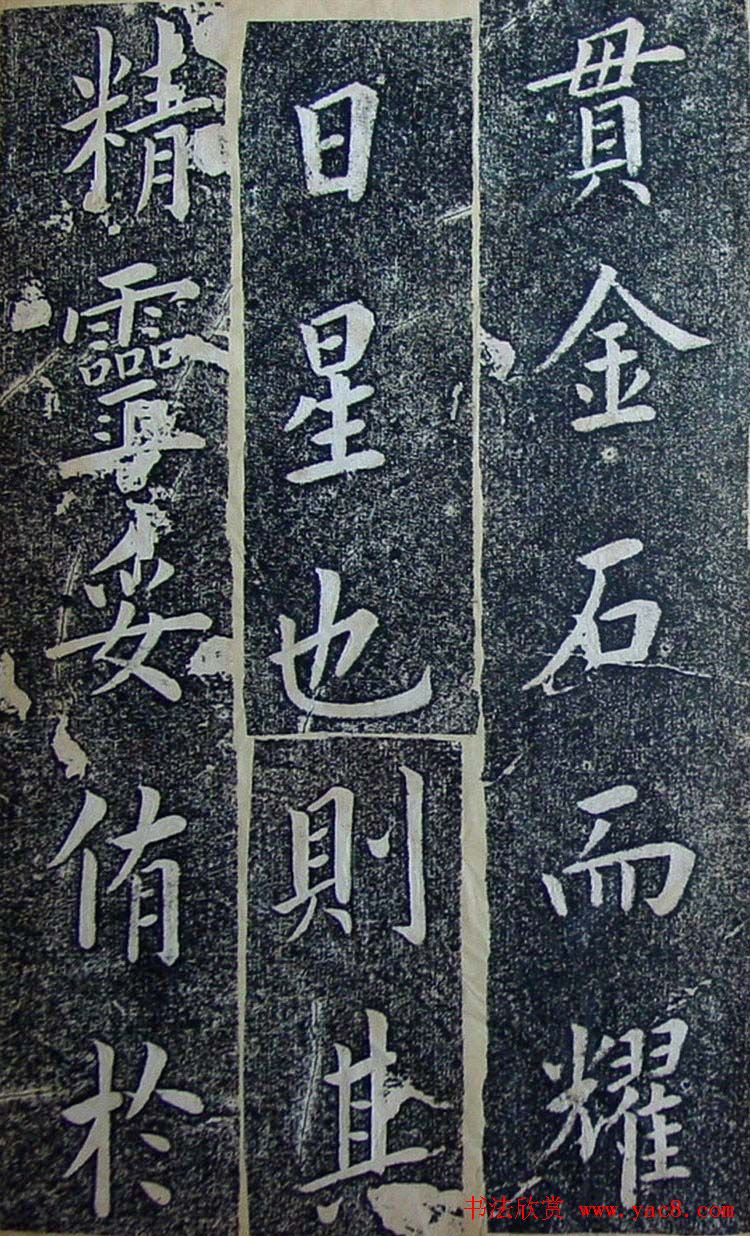 貫金石而耀
日星也則其
精靈妥侑於
书法欣赏 www.yac8.com